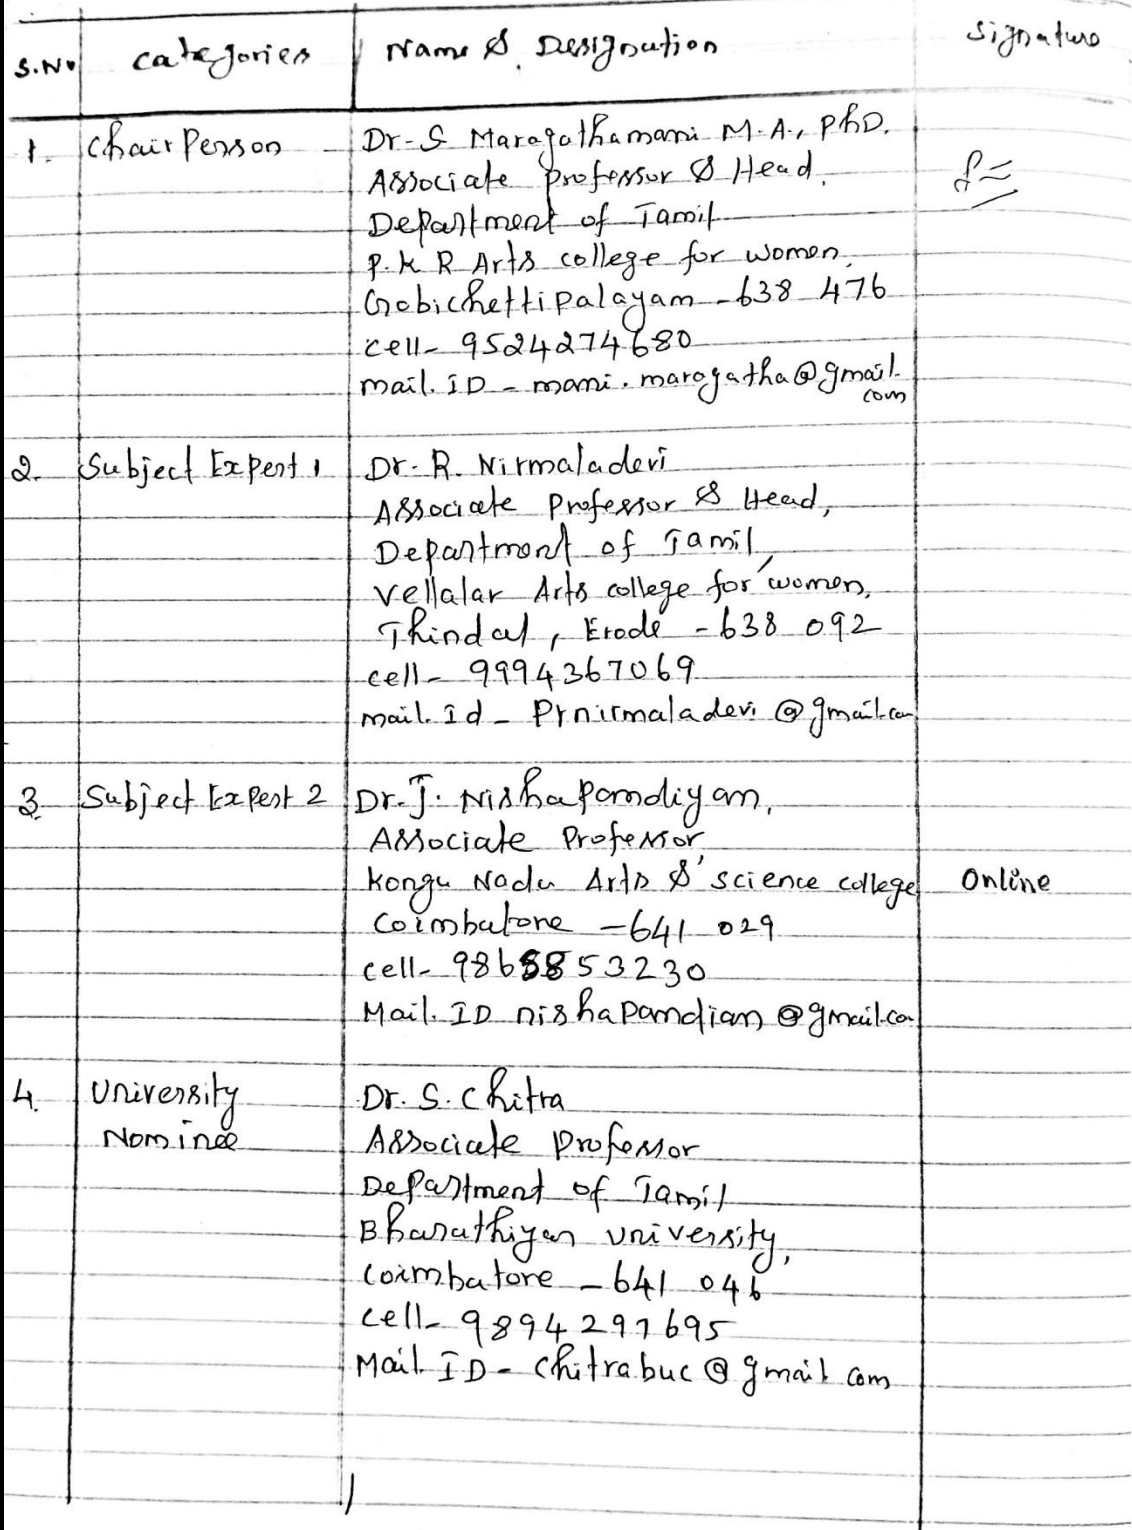 S.No Categories Name & Designation Signature
1. Chair Person Dr. S Maragathamani M.A., PhD.
Associate professor & Head.
Department of Tamil
P.K R Arts college for women,
Gobichettipalayam - 638 476
cell- 9524274680
mail. ID - mani.maragatha@gmail.
com
2. Subject Expert 1 Dr. R. Nirmaladevi
Associate Professor & Head,
Department of Tamil,
Vellalar Arts college for women,
Thindal, Erode - 638 092
cell- 9994367069
mail. Id - Prnirmaladevi@gmail.com
3. Subject Expert 2 Dr. J. Nishapandiyan,
Associate Professor
Kongu Nadu Arts & science college Online
Coimbatore - 641 029
cell- 9865853230
Mail. ID nishapandian@gmail.com
4. University Dr. S. Chitra
Nominee Associate Professor
Department of Tamil
Bharathiyar University,
Coimbatore - 641 046
cell- 9894297695
Mail ID - Chitrabuc@gmail com